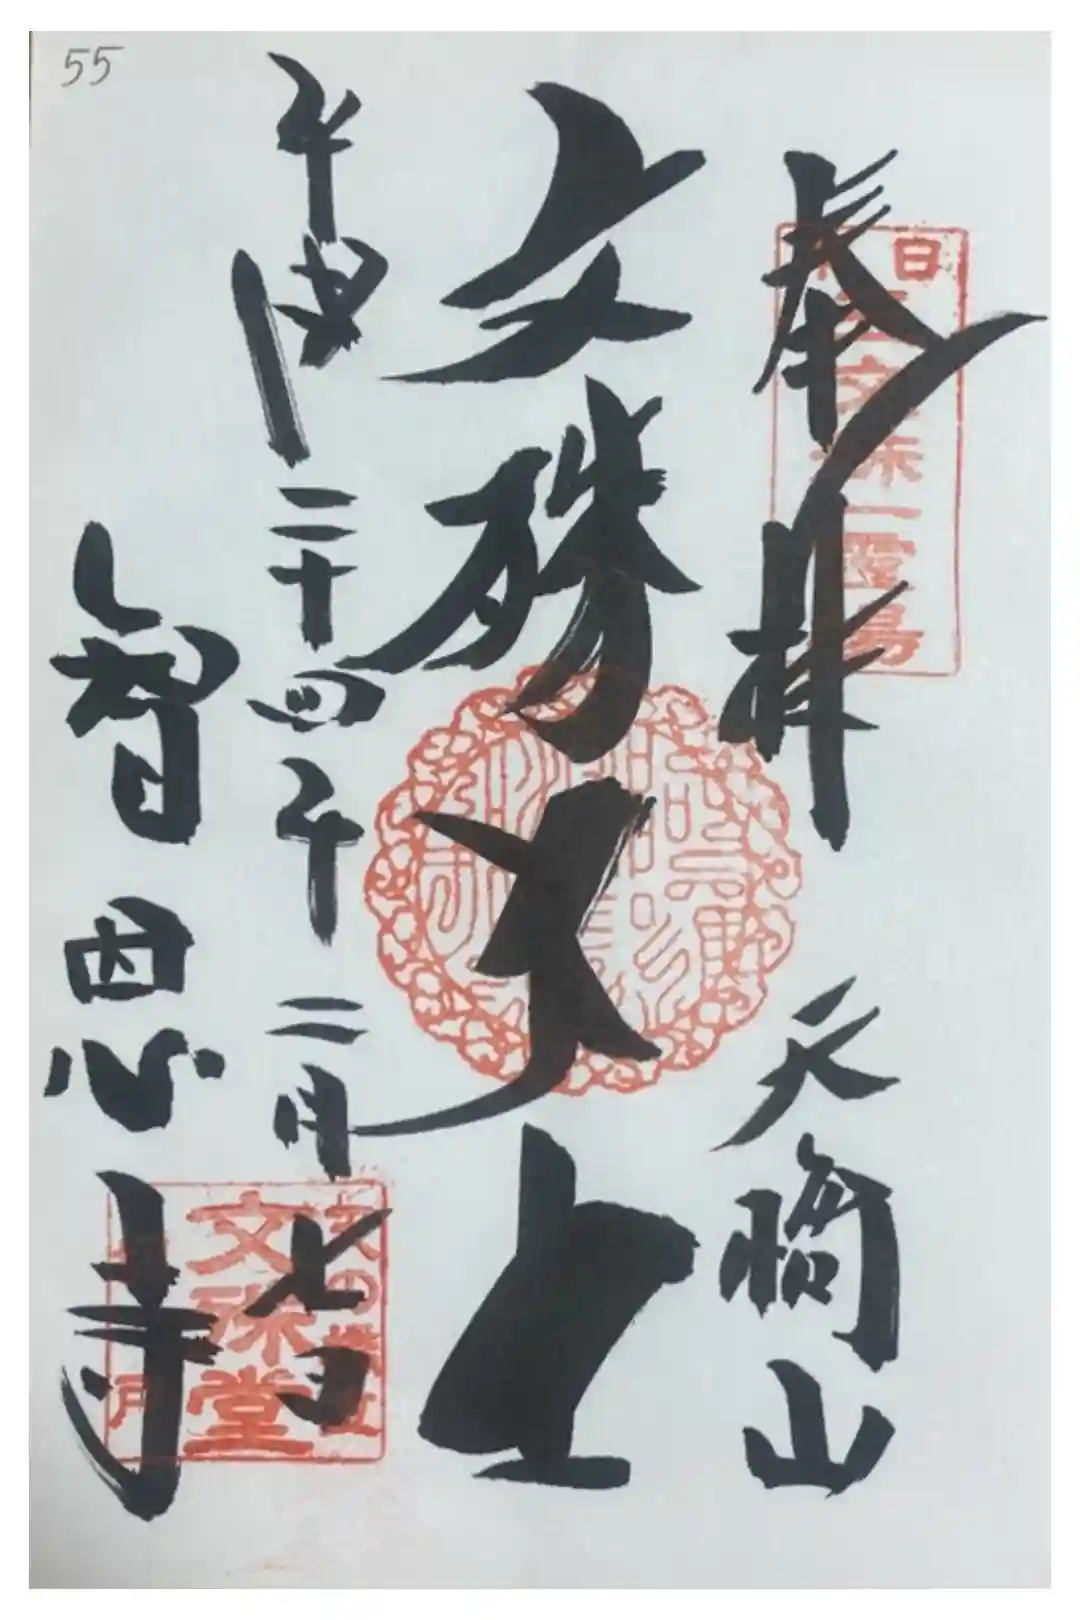 奉拝
天橋山
日本三文殊一霊場
文殊大士
平成二十四年二月七日
文殊堂
智恩寺
55